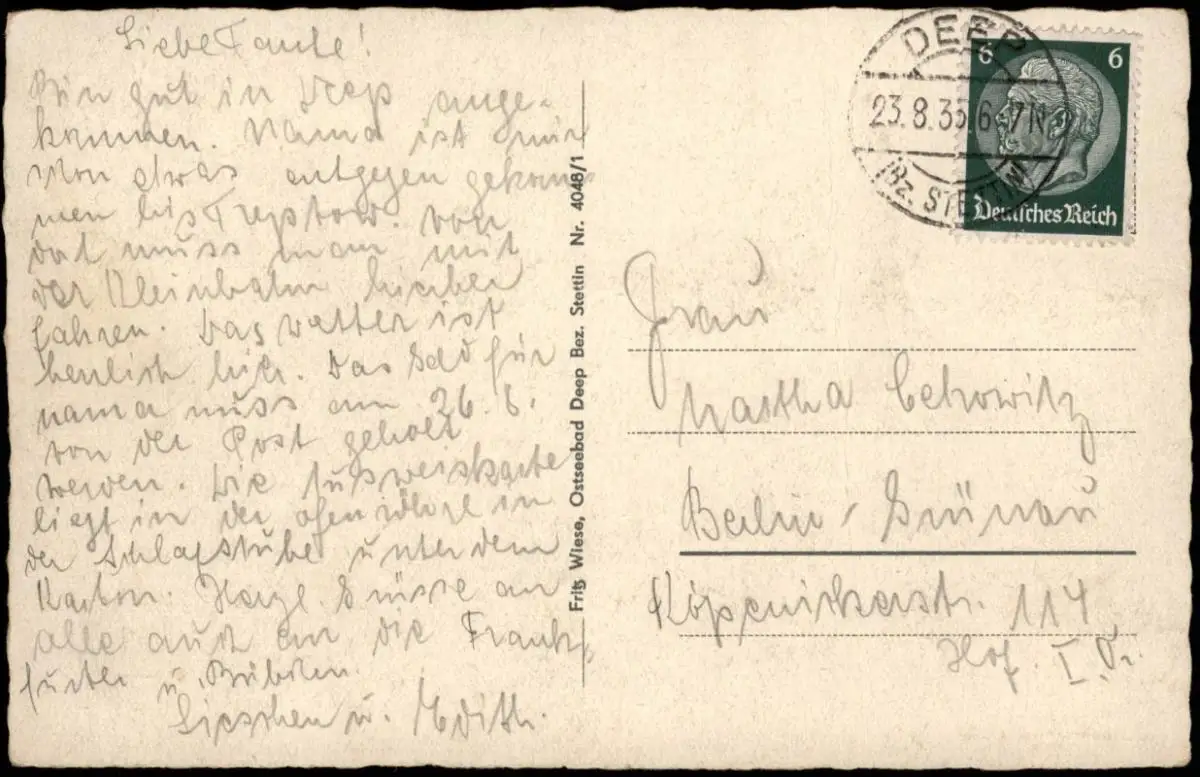 Liebe Tante!
Bin gut in Deep ange-
kommen. Mama ist mir
schon etwas entgegen gekom-
men bis Treptow. Von
dort muss man mit
der Kleinbahn hierher
fahren. Das Wetter ist
herrlich hier. Das Geld für
Mama muss am 26.8.
von der Post geholt
werden. Die Ausweiskarte
liegt in der Ofenröhre in
der Schlafstube unter dem
Karton. Herzl. Grüsse an
alle auch an die Frank-
furter u. Bübchen.
Lieschen u. Edith.
Fritz Wiese, Ostseebad Deep Bez. Stettin Nr. 4048/1
DEEP
23.8.35 6-7N
(Bz. STETTIN)
6 6
Deutsches Reich
Frau
Martha
Berlin-Grünau
Köpenickerstr. 114
Hof. I.